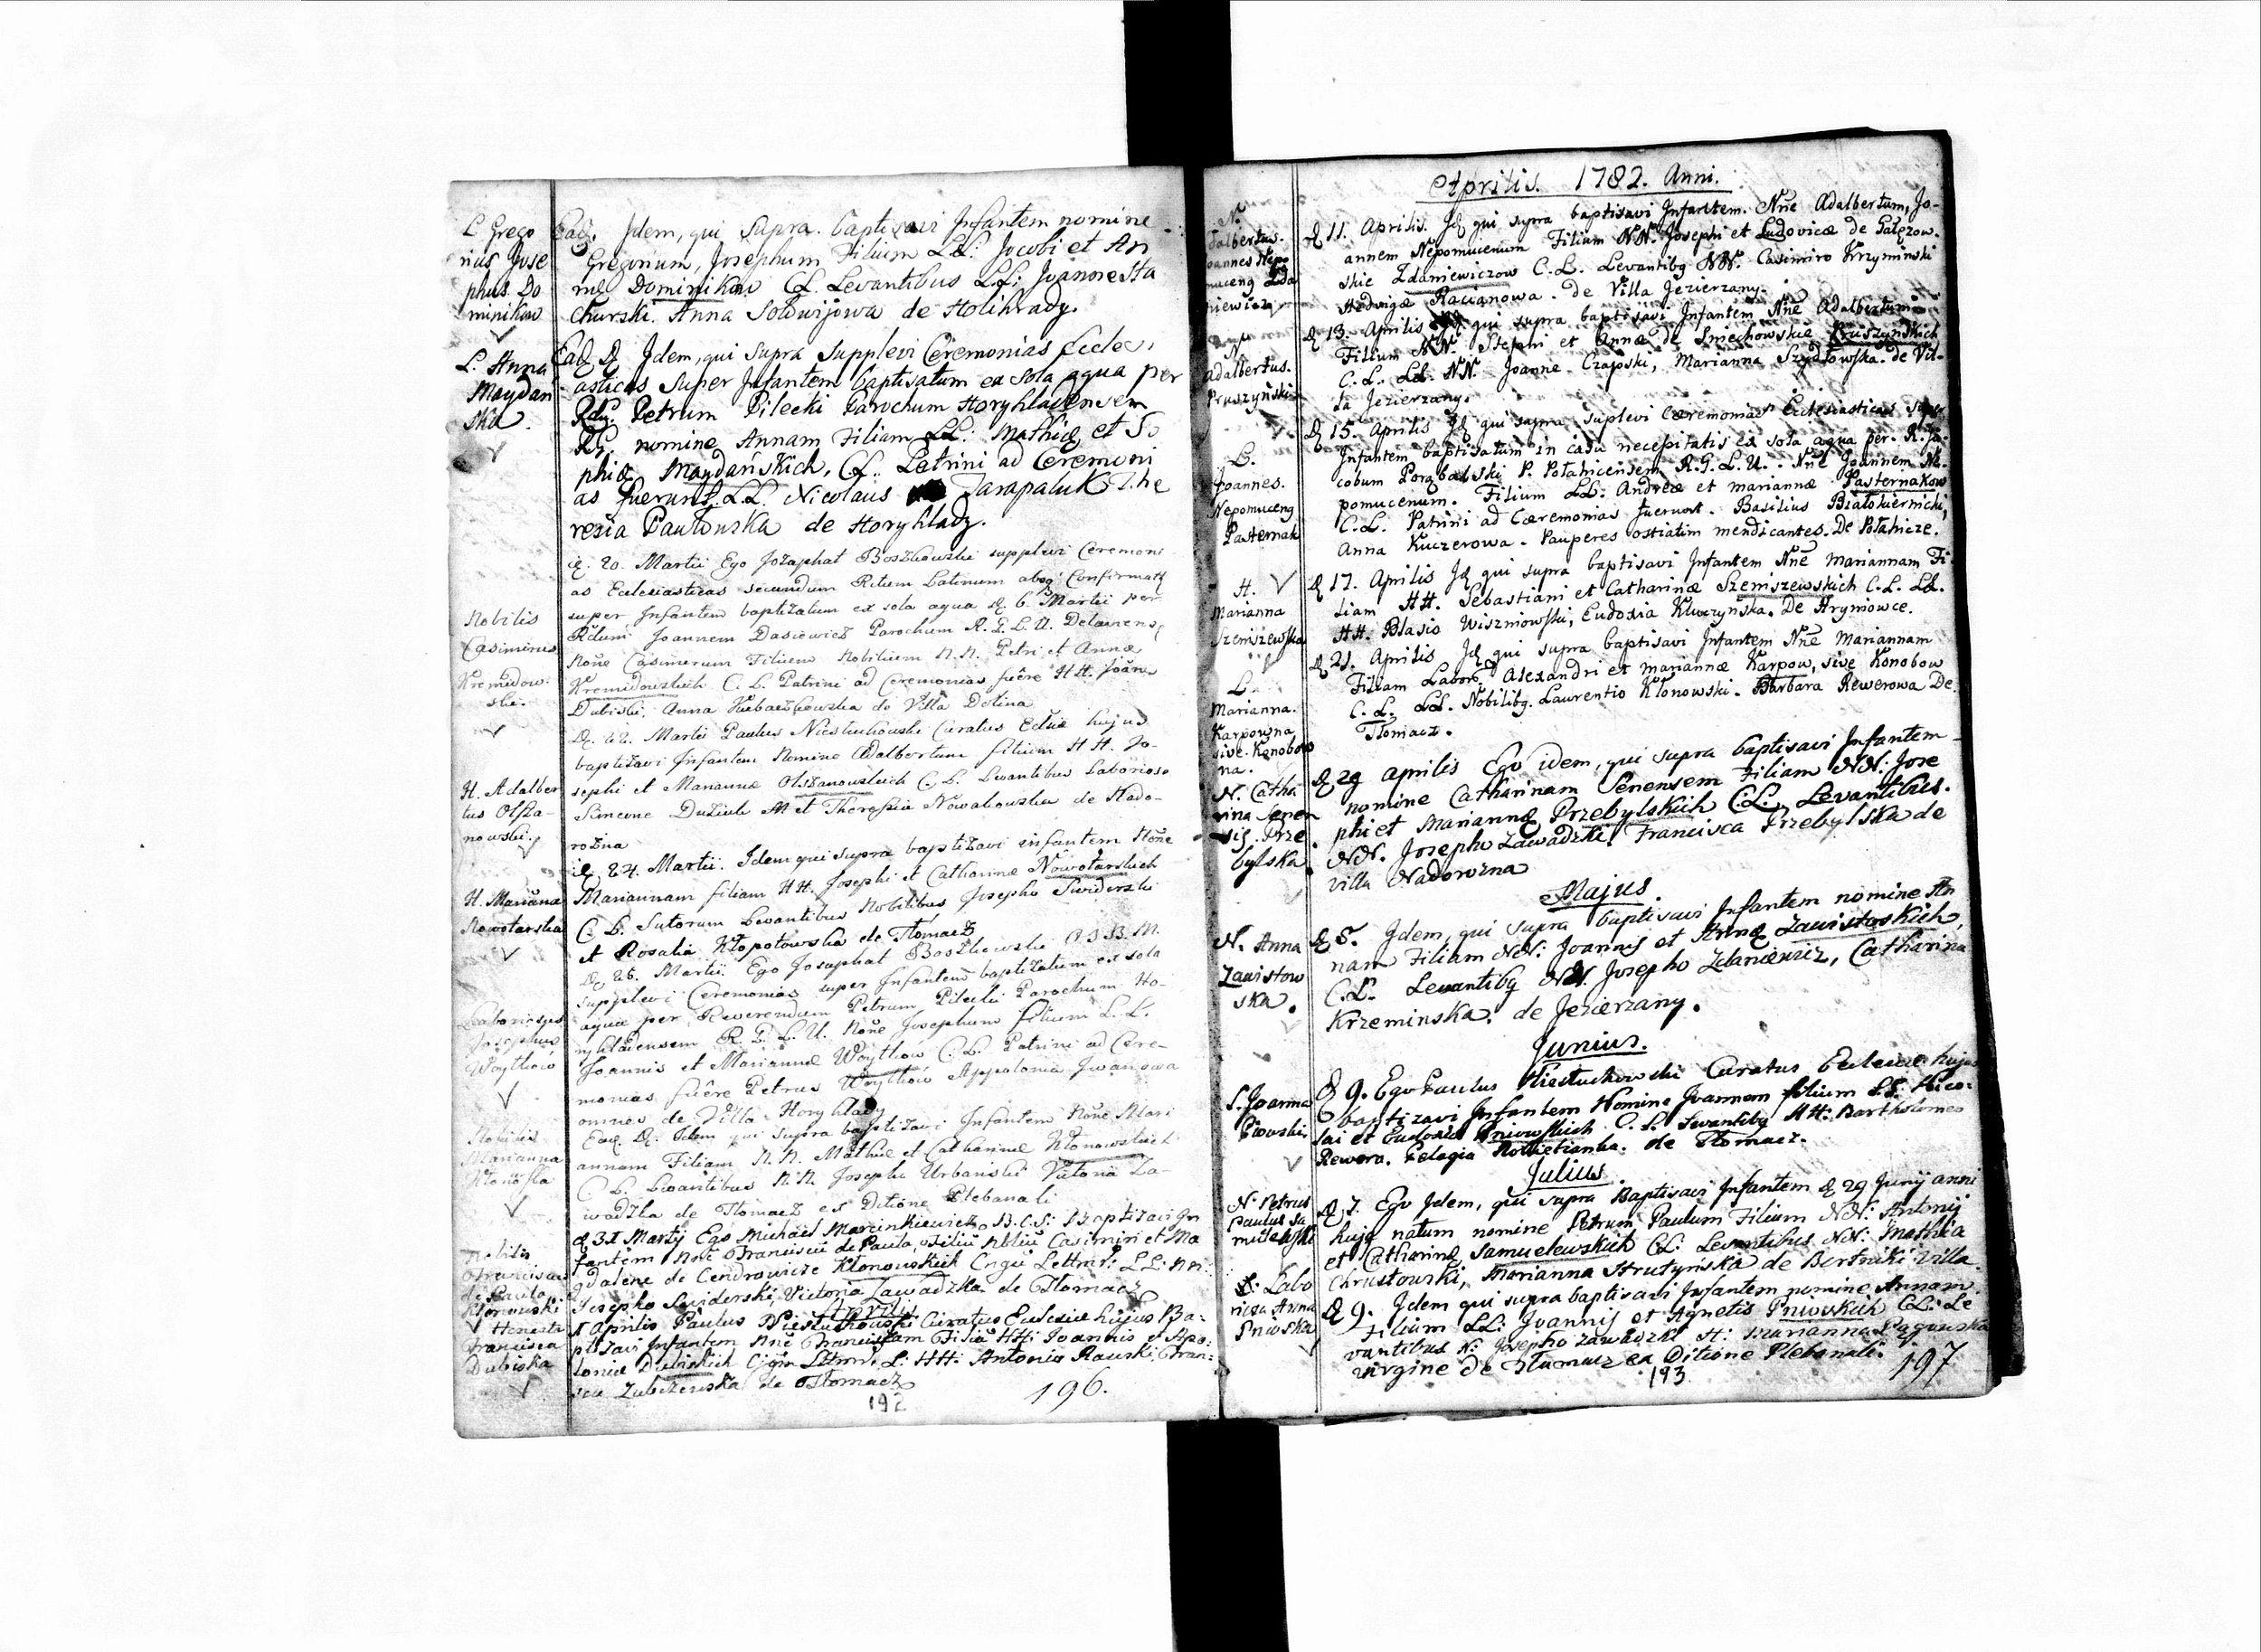 L Grego
rius Jose
phus Do
minikow
Eadę. Idem, qui Supra. baptisavi Infantem nomine
Gregorium, Josephum Filium LL: Jacobi et An
nę Dominikow CL. Levantibus LL: Joanne Sta
churski. Anna Sołowijowa de Holihrady.
L. Anna
Maydan
ska.
Eadę Dę Idem, qui Supra Supplevi Ceremonias Eccles,
asticas Super Infantem baptisatum ex sola aqua per
Rdu. Petrum Pilecki Parochum Horyhladensem
nomine Annam Filiam LL: Mathię et So
phię Maydańskich, CL. Patrini ad Ceremoni
as fuerunt LL Nicolaus Tarapaluk The
resia Pawłowska de Horyhlady.
Nobilis
Casimirus
Kremidow:
ski.
20. Martii Ego Jozaphat Boszkowski supplevi Ceremoni
as Ecclesiasticas secundum Ritum Latinum absq Confirmatę
super Infantem baptizatum ex sola aqua dę 6 Martii per
Rdum Joannem Dasiewicz Parochum R. G. L. U.
None Casimirum Filium Nobilium N. N. Petri et Annæ
Kremidowskich C. L. Patrini ad Ceremonias fuêre HH. Joan
Dubiski, Anna de Villa Dolina
H. Adalber
tus Olsza-
nowski.
Dę. 22. Martii Paulus Niestuchowski Curatus Eclæ hujus
baptizavi Infantem Nomine Adalbertum filium HH. Jo-
sephi et Mariannæ Olszanowskich C. L. Levantibus Laborioso
Simeone M et Theresia Nowakowska de Nado-
rożna
H. Mariana
Nowotarska
24. Martii. Idem qui supra baptizavi infantem None
Mariannam filiam HH. Josephi et Catharinæ Nowotarskich
C. L. Sutorum Levantibus Nobilibus Josepho Swiderski
et Rosalia Kłopotowska de Tłomacz
Laboriosus
Josephus
Woytkow
Dę 26. Martii. Ego Josaphat Boszkowski O.S.B.M.
supplevi Ceremonias super Infantem baptizatum ex sola
aqua per Reverendum Petrum Pilecki Parochum Ho-
ryhladensem R. G. L. U. None Josephum filium L. L.
Joannis et Mariannæ Woytków C. L. Patrini ad Cere-
monias fuêre Petrus Woytków Appolonia Iwanowa
omnes de Villa Horyhlady
Nobilis
Marianna
Eadę. Dę. Idem qui supra baptizavi Infantem None Mari
annam Filiam N. N. Mathiæ et Catharinæ Kłonowskich
C. L. Levantibus N. N. Josepho Urbanski Victoria Za-
wadzka de Tłomacz ex Ditione Plebanali
Nobilis
Franciscus
de Paula
Klonowski
dę 31 Martij Ego Michael Marcinkiewicz B.C.S: Baptizavi In
fantem Noē Franciscū de Paula, Filiū Nbliū Casimiri et Ma
gdalenæ de Cendrowicze Kłonowskich
Josepho Swiderski, Victoria Zawadzka de Tłomacz
Aprilis
Honesta
Francisca
Dubiska
1 Aprilis Paulus Niestuchowski Curatus Ecclesiæ hujus Ba-
ptizavi Infantem Nnē Franciscam Filiā HH: Joannis et Apo-
loniæ Dubiskich L: HH: Antonio Rauski, Fran:
de Tłomacz
192
196.
Aprilis. 1782. Anni.
N.
dalbertus.
oannes Nepo
muceng Zda
niewicz
Dę 11. Aprilis. Idę qui supra baptisavi Infantem. Nnē Adalbertum, Jo-
annem Nepomucenum Filium NN. Josephi et Ludovicæ de Gałęzow-
skie Zdaniewiczow C. L. Levantibg NN. Casimiro Krzyminski
Hedwigæ Racianowa. de Villa Jezierzany.
N
Adalbertus.
Pruszyński
Dę 13. Aprilis Idę qui supra baptisavi Infantem Nnē Adalbertum
Filium NN. Stephi et Annæ de Smiechowskie Pruszyńskich
C. L. LL. NN. Joanne Czapski, Marianna Szydłowska. de Vil-
la Jezierzany.
L.
Joannes.
Nepomuceng
Pasternak
Dę 15. Aprilis Idę qui supra suplevi Cæremonias Ecclesiasticas super
Infantem baptisatum in casu necessitatis ex sola aqua per. R. Ja-
cobum Porąbalski P. Pałahicensem R.G.L.U.. Nnē Joannem Ne-
pomucenum. Filium LL: Andreæ et mariannæ Pasternakow
C.L. Patrini ad Cæremonias fuerunt. Basilius Białokiernicki,
Anna Kuczerowa. Pauperes ostiatim mendicantes. De Pałahicze.
H.
Marianna
Szemszewska
Dę 17. Aprilis Idę qui supra baptisavi Infantem Nnē Mariannam Fi-
liam HH. Sebastiani et Catharinæ Szemiszewskich C. L. LL.
HH. Blasio Wiszniowski, Eudoxia Kluczyńska. De Hryniowce.
L.
Marianna.
Karpowna
sive. Konobow
na.
Dę 21. Aprilis Idę qui supra baptisavi Infantem Nnē Mariannam
Filiam Labor: Alexandri et mariannæ Karpow, sive Konobow
C. L. LL. Nobilibg. Laurentio Kłonowski. Barbara Rewerowa De
Tłomacz.
N. Catha
rina Senen
sis. Prze
bylska.
Dę 29 aprilis Ego idem, qui supra baptisavi Infantem
nomine Catharinam Senensem Filiam NN: Jose
phi et Mariannę Przebylskich C:L. Levantibus.
NN. Josepho Zawadzki, Francisca Przebylska de
villa Nadorozna
Majus.
N. Anna
Zawistow
ska.
Dę 5. Idem, qui supra baptisavi Infantem nomine An
nam Filiam NN: Joannis et Annę Zawistoskich,
C.L. Levantibg NN. Josepho Zdaniewicz, Catharina
Krzeminska. de Jezierzany.
Junius.
Dę 9. Ego Paulus Niestuchowski Curatus Ecclesiæ hujus
baptizavi Infantem Nomine Joannem filium LL: Nico-
lai et Eudoxiæ Pniowskich C. L. Levantibg HH: Bartholomeo
Rewera. Pelagia de Tłomacz.
Julius.
N. Petrus
Paulus Sa
mulewski
Dę 7. Ego Idem, qui supra Baptisavi Infantem dę 29 Junij anni
hujg natum nomine Petrum Paulum Filium NN: Antonij
et Catharinę Samuelewskich CL. Levantibus NN: Mathia
Chrustowski, Marianna Strutyńska de Bortniki villa.
L. Labo
riosa Anna
Pniowska
Dę 9. Idem qui supra baptisavi Infantem nomine Annam
Filiam LL: Joannis et Agnetis Pniowskich CL: Le
vantibus N: Josepho Zawadzki H: Marianna Pagowska
virgine de Tlumacz ex Ditione Plebanali.
193
197